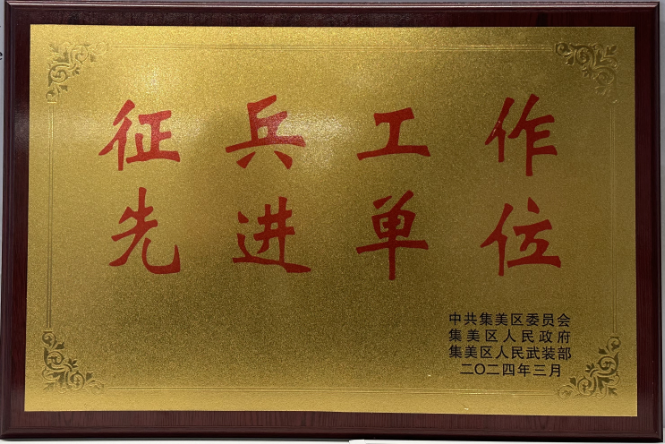 征兵工作
先进单位
中共集美区委员会
集美区人民政府
集美区人民武装部
二〇二四年三月